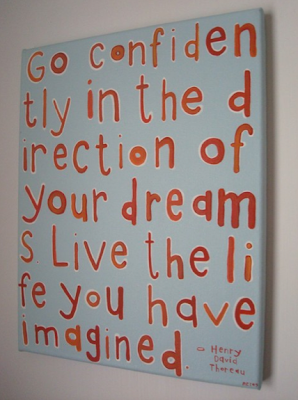 Go confiden
tly in the d
irection of
your dream
s Live the li
fe you have
imagined.
- Henry
David
Thoreau